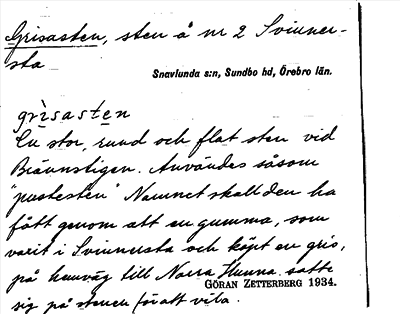 Grisasten, sten å nr 2 Svinner-
sta
Snavlunda s:n, Sundbo hd, Örebro län.
grisasten
En stor, rund och flat sten vid
Brännstigen. Användes såsom
"pustesten" Namnet skall den ha
fått genom att en gumma, som
varit i Svinnersta och köpt en gris,
på hemväg till Norra Hunna satte
GÖRAN ZETTERBERG 1934.
sig på stenen för att vila.